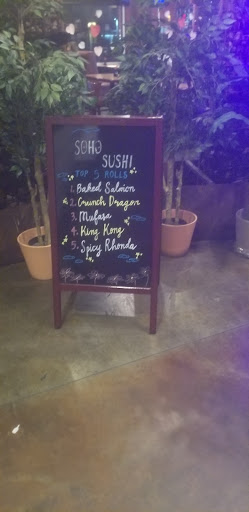 SOHO
SUSHI
TOP 5 ROLLS
1. Baked Salmon
2. Crunch Dragon
3. Mufasa
4. King Kong
5. Spicy Rhonda